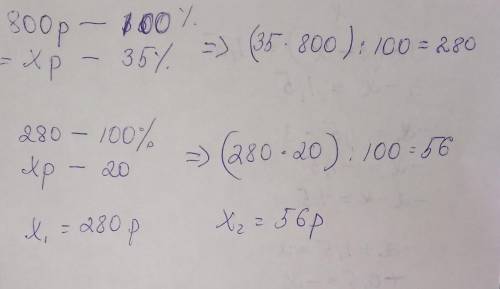 800р — 100%
= хр — 35% => (35·800):100=280
280 — 100%
хр — 20 => (280·20):100=56
x₁ = 280р x₂ = 56р